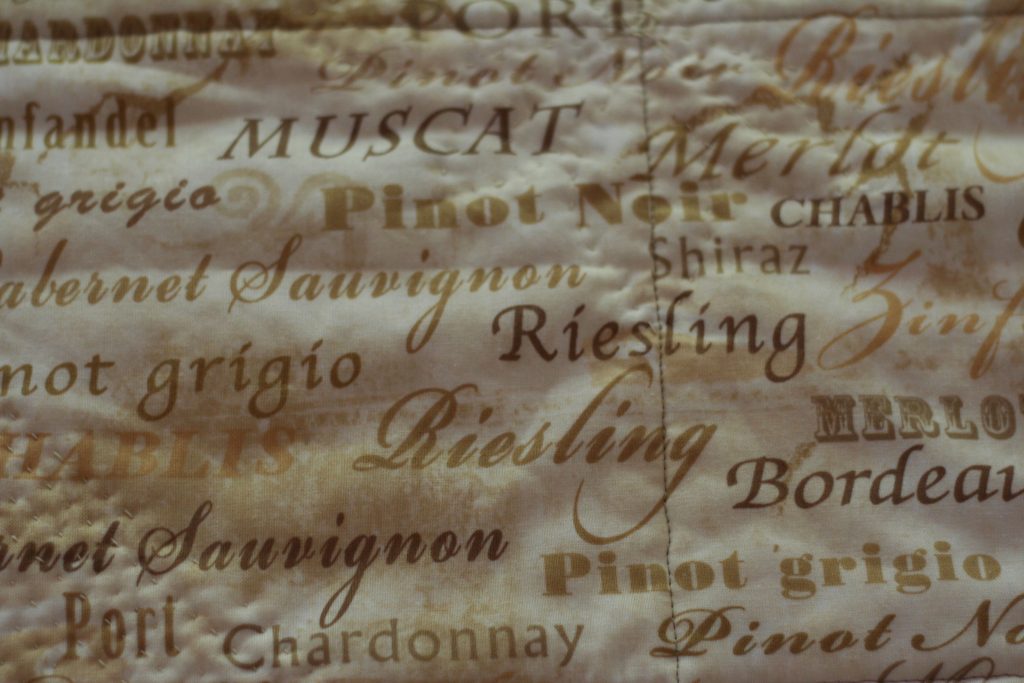 PORT
HARDONNAY
Pinot Noir
Riesli
nfandel
MUSCAT
Merlot
grigio
Pinot Noir
CHABLIS
Shiraz
abernet Sauvignon
Zinf
Riesling
not grigio
MERLO
HABLIS
Riesling
Bordeau
rnet Sauvignon
Pinot grigio
Port
Chardonnay
Pinot No